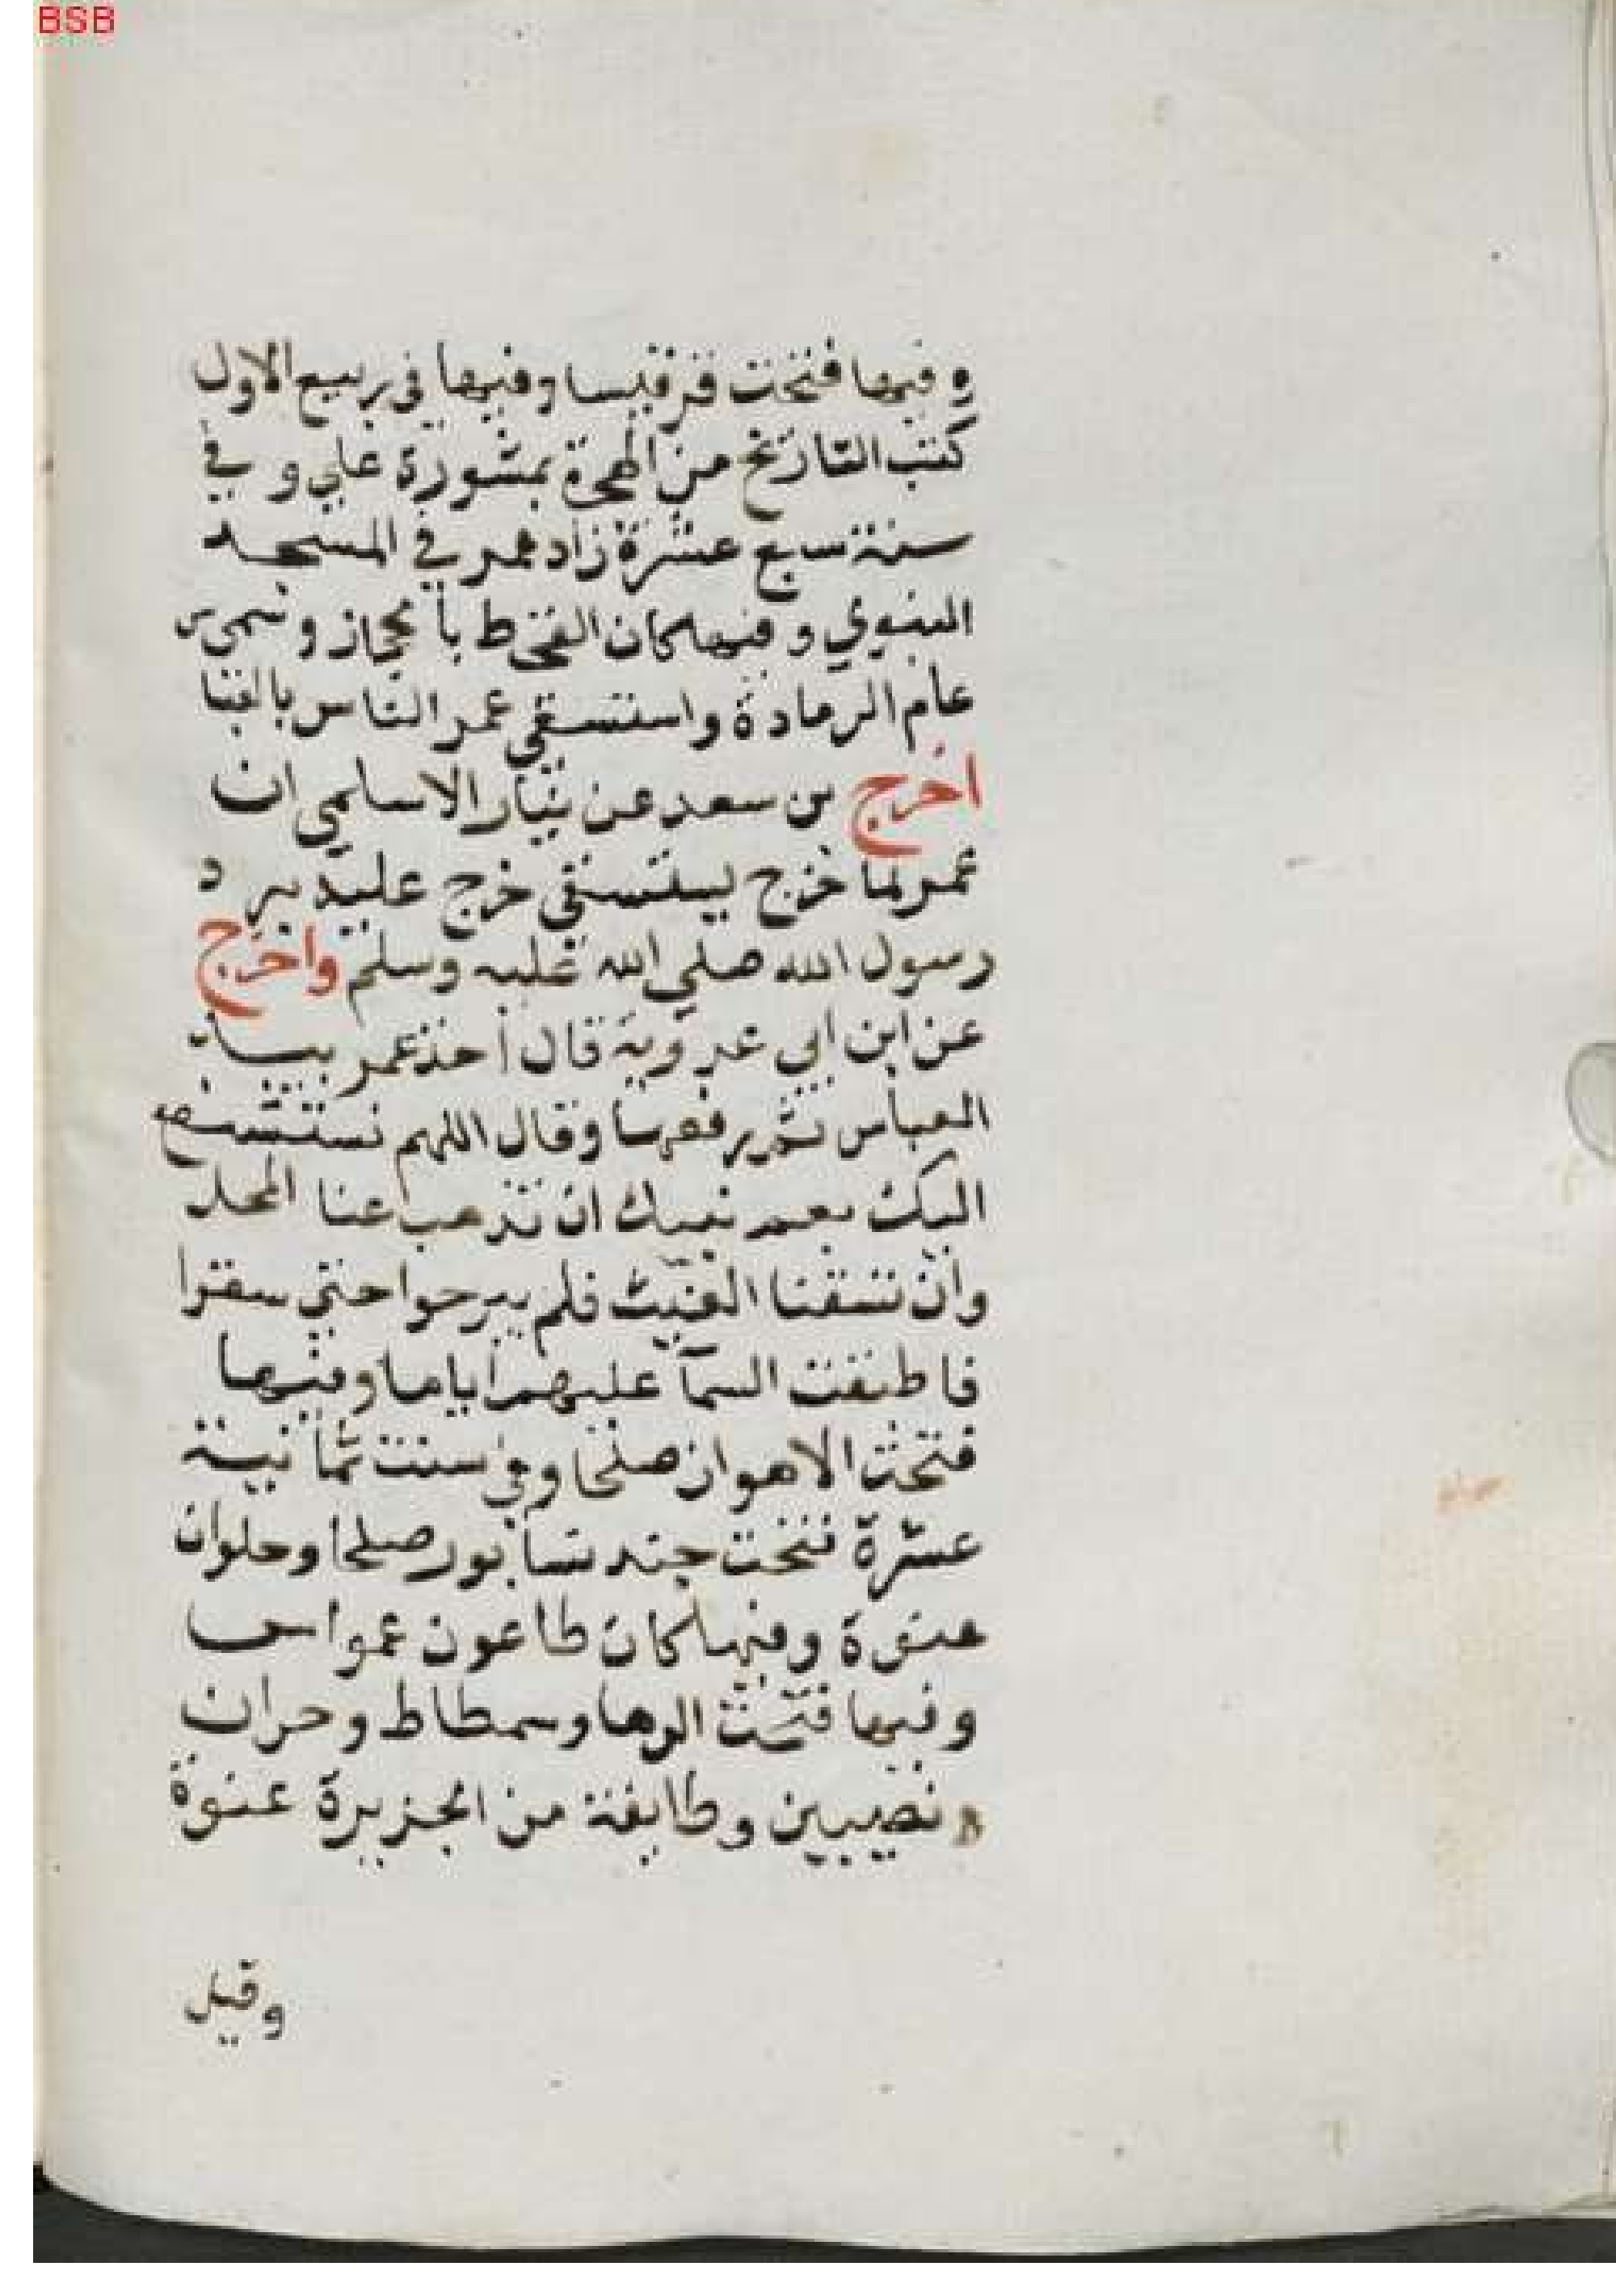 BSB
وفيها فتحت قرقيسا وفيها في ربيع الاول
كتب التاريخ من الهجرة بمشورة علي وفي
سنة سبع عشرة زاد عمر في المسجد
النبوي وفيها كان القحط بالحجاز وسمي
عام الرمادة واستسقي عمر الناس بالعبا
اخرج بن سعد عن نيار الاسلمي ان
عمر لما خرج يستسقي خرج عليه برد
رسول الله صلي الله عليه وسلم واخرج
عن ابن ابي عروبة قال أخذ عمر بيد
العباس ثم رفعها وقال اللهم نستشفع
اليك بعم نبيك ان تذهب عنا المحل
وان تسقنا الغيث فلم يبرحوا حتي سقوا
فاطبقت السمآ عليهم أياما وفيها
فتحت الاهواز صلحا وفي سنت ثمانية
عشرة فتحت جند نسابور صلحا وحلوان
عنوة وفيها كان طاعون عمواس
وفيها فتحت الرها وسمطاط وحران
ونصيبين وطايفة من الجزيرة عنوة
وقيل